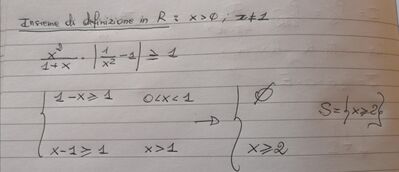 Insieme di definizione in R : x>0 ; x≠1
x²/(1+x) · |1/x² - 1| ≥ 1
{ 1-x ≥ 1 0<x<1 → { ∅
x-1 ≥ 1 x>1 x ≥ 2
S = {x≥2}